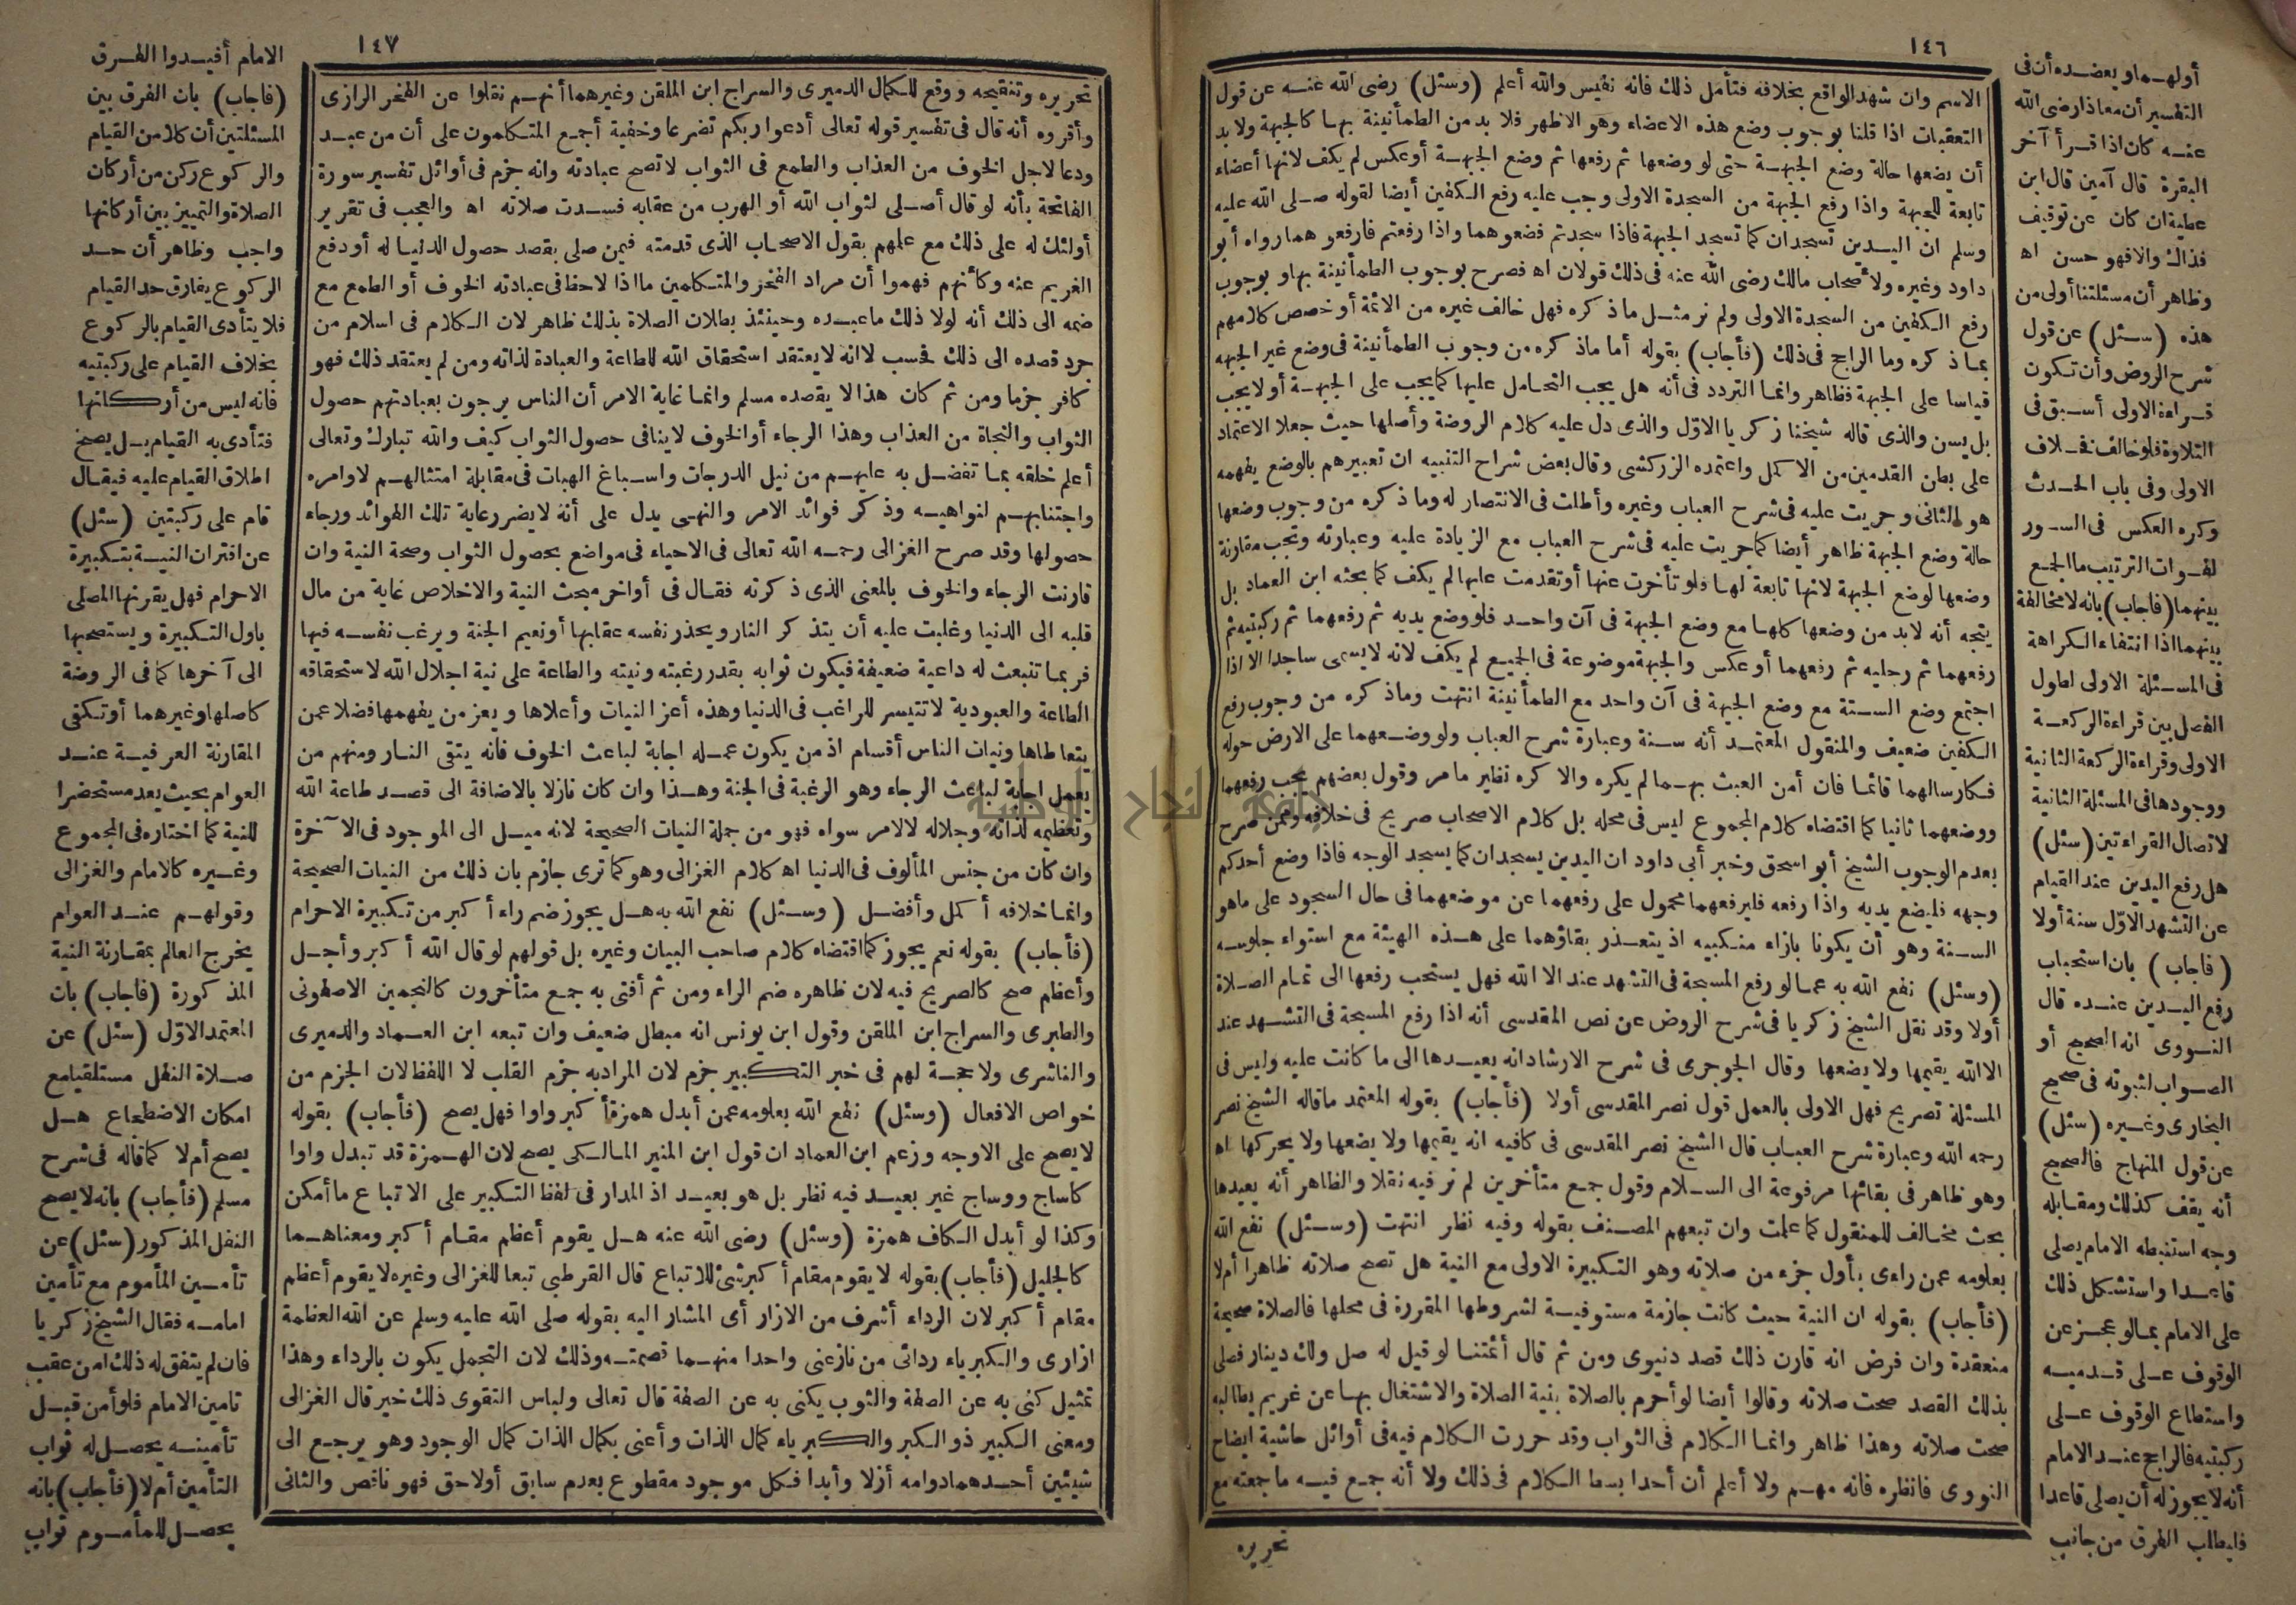 ١٤٦
الاسم وان شهد الواقع بخلافه فتأمل ذلك فانه نفيس والله أعلم (وسئل) رضى الله عنه عن قول
التعقبات اذا قلنا بوجوب وضع هذه الاعضاء وهو الاظهر فلا بد من الطمأنينة بها كالجبهة ولا بد
أن يضعها حالة وضع الجبهة حتى لو وضعها ثم رفعها ثم وضع الجبهة أو عكس لم يكف لانها أعضاء
تابعة للجبهة واذا رفع الجبهة من السجدة الاولى وجب عليه رفع الكفين أيضا لقوله صلى الله عليه
وسلم ان اليدين تسجدان كما تسجد الجبهة فاذا سجدتم فضعوهما واذا رفعتم فارفعوهما رواه أبو
داود وغيره ولأصحاب مالك رضى الله عنه فى ذلك قولان اه فصرح بوجوب الطمأنينة بها وبوجوب
رفع الكفين من السجدة الاولى ولم نر مثل ما ذكره فهل خالف غيره من الائمة أو خصص كلامهم
بما ذكره وما الراجح فى ذلك (فأجاب) بقوله أما ما ذكره من وجوب الطمأنينة فى وضع غير الجبهة
قياسا على الجبهة فظاهر وانما التردد فى أنه هل يجب التحامل عليها كما يجب على الجبهة أو لا يجب
بل يسن والذى قاله شيخنا زكريا الاول والذى دل عليه كلام الروضة وأصلها حيث جعلا الاعتماد
على بطن القدمين من الاكمل واعتمده الزركشى وقال بعض شراح التنبيه ان تعبيرهم بالوضع يفهمه
هو الثانى وجريت عليه فى شرح العباب وغيره وأطلت فى الانتصار له وما ذكره من وجوب وضعها
حالة وضع الجبهة ظاهر أيضا كما جريت عليه فى شرح العباب مع الزيادة عليه وعبارته وتجب مقارنة
وضعها لوضع الجبهة لانها تابعة لها فلو تأخرت عنها أو تقدمت عليها لم يكف كما بحثه ابن العماد بل
يتجه أنه لابد من وضعها كلها مع وضع الجبهة فى آن واحد فلو وضع يديه ثم رفعهما ثم ركبتيه ثم
رفعهما ثم رجليه ثم رفعهما أو عكس والجبهة موضوعة فى الجميع لم يكف لانه لا يسمى ساجدا الا اذا
اجتمع وضع الستة مع وضع الجبهة فى آن واحد مع الطمأنينة انتهت وما ذكره من وجوب رفع
الكفين ضعيف والمنقول المعتمد أنه سنة وعبارة شرح العباب ولو وضعهما على الارض حوله
فكارسالهما قائما فان أمن العبث بهما لم يكره والا كره نظير ما مر وقول بعضهم يجب رفعهما
ووضعهما ثانيا كما اقتضاه كلام المجموع ليس فى محله بل كلام الاصحاب صريح فى خلافه وممن صرح
بعدم الوجوب الشيخ أبو اسحق وخبر أبى داود ان اليدين يسجدان كما يسجد الوجه فاذا وضع أحدكم
وجهه فليضع يديه واذا رفعه فليرفعهما محمول على رفعهما عن موضعهما فى حال السجود على ما هو
السنة وهو أن يكونا بازاء منكبيه اذ يتعذر بقاؤهما على هذه الهيئة مع استواء جلوسه
(وسئل) نفع الله به عما لو رفع المسبحة فى التشهد عند الا الله فهل يستحب رفعها الى تمام الصلاة
أولا وقد نقل الشيخ زكريا فى شرح الروض عن نص المقدسى أنه اذا رفع المسبحة فى التشهد عند
الا الله يقيمها ولا يضعها وقال الجوجرى فى شرح الارشاد انه يعيدها الى ما كانت عليه وليس فى
المسئلة تصريح فهل الاولى بالعمل قول نصر المقدسى أولا (فأجاب) بقوله المعتمد ما قاله الشيخ نصر
رحمه الله وعبارة شرح العباب قال الشيخ نصر المقدسى فى كافيه انه يقيمها ولا يضعها ولا يحركها اه
وهو ظاهر فى بقائها مرفوعة الى السلام وقول جمع متأخرين لم نر فيه نقلا والظاهر أنه يعيدها
بحث مخالف للمنقول كما علمت وان تبعهم المصنف بقوله وفيه نظر انتهت (وسئل) نفع الله
بعلومه عمن راءى بأول جزء من صلاته وهو التكبيرة الاولى مع النية هل تصح صلاته ظاهرا أم لا
(فأجاب) بقوله ان النية حيث كانت جازمة مستوفية لشروطها المقررة فى محلها فالصلاة صحيحة
منعقدة وان فرض انه قارن ذلك قصد دنيوى ومن ثم قال أئمتنا لو قيل له صل ولك دينار فصلى
بذلك القصد صحت صلاته وقالوا أيضا لو أحرم بالصلاة بنية الصلاة والاشتغال بها عن غريم يطالبه
صحت صلاته وهذا ظاهر وانما الكلام فى الثواب وقد حررت الكلام فيه فى أوائل حاشية ايضاح
النووى فانظره فانه مهم ولا أعلم أن أحدا بسط الكلام فى ذلك ولا أنه جمع فيه ما جمعته مع
تحريره
أولهما ويعضده أن فى
التفسير أن معاذا رضى الله
عنه كان اذا قرأ آخر
البقرة قال آمين قال ابن
عطية ان كان عن توقيف
فذاك والا فهو حسن اه
وظاهر أن مسئلتنا أولى من
هذه (سئل) عن قول
شرح الروض وأن تكون
قراءة الاولى أسبق فى
التلاوة فلو خالف فخلاف
الاولى وفى باب الحدث
وكره العكس فى السور
لفوات الترتيب ما الجمع
بينهما (فأجاب) بانه لا مخالفة
بينهما اذا انتفاء الكراهة
فى المسئلة الاولى لطول
الفصل بين قراءة الركعة
الاولى وقراءة الركعة الثانية
ووجودها فى المسئلة الثانية
لاتصال القراءتين (سئل)
هل رفع اليدين عند القيام
عن التشهد الاول سنة أولا
(فأجاب) بان استحباب
رفع اليدين عنده قال
النووى انه الصحيح أو
الصواب لثبوته فى صحيح
البخارى وغيره (سئل)
عن قول المنهاج فالصحيح
أنه يقف كذلك ومقابله
وجه استنبطه الامام يصلى
قاعدا واستشكل ذلك
على الامام بما لو عجز عن
الوقوف على قدميه
واستطاع الوقوف على
ركبتيه فالراجح عند الامام
أنه لا يجوز له أن يصلى قاعدا
فايطلب الفرق من جانب
١٤٧
تحريره وتنقيحه ووقع للكمال الدميرى والسراج ابن الملقن وغيرهما أنهم نقلوا عن الفخر الرازى
وأقروه أنه قال فى تفسير قوله تعالى أدعوا ربكم تضرعا وخفية أجمع المتكلمون على أن من عبد
ودعا لاجل الخوف من العذاب والطمع فى الثواب لا تصح عبادته وانه جزم فى أوائل تفسير سورة
الفاتحة بأنه لو قال أصلى لثواب الله أو الهرب من عقابه فسدت صلاته اه والعجب فى تقرير
أولئك له على ذلك مع علمهم بقول الاصحاب الذى قدمته فيمن صلى بقصد حصول الدنيا له أو دفع
الغريم عنه وكأنهم فهموا أن مراد الفخر والمتكلمين ما اذا لاحظ فى عبادته الخوف أو الطمع مع
ضمه الى ذلك أنه لولا ذلك ما عبده وحينئذ بطلان الصلاة بذلك ظاهر لان الكلام فى اسلام من
جرد قصده الى ذلك فحسب لانه لا يعتقد استحقاق الله للطاعة والعبادة لذاته ومن لم يعتقد ذلك فهو
كافر جزما ومن ثم كان هذا لا يقصده مسلم وانما غاية الامر أن الناس يرجون بعبادتهم حصول
الثواب والنجاة من العذاب وهذا الرجاء أو الخوف لا ينافى حصول الثواب كيف والله تبارك وتعالى
أعلم خلقه بما تفضل به عليهم من نيل الدرجات واسباغ الهبات فى مقابلة امتثالهم لاوامره
واجتنابهم لنواهيه وذكر فوائد الامر والنهى يدل على أنه لا يضر رعاية تلك الفوائد ورجاء
حصولها وقد صرح الغزالى رحمه الله تعالى فى الاحياء فى مواضع بحصول الثواب وصحة النية وان
قارنت الرجاء والخوف بالمعنى الذى ذكرته فقال فى أواخر مبحث النية والاخلاص غاية من مال
قلبه الى الدنيا وغلبت عليه أن يتذكر النار ويحذر نفسه عقابها أو نعيم الجنة ويرغب نفسه فيها
فربما تنبعث له داعية ضعيفة فيكون ثوابه بقدر رغبته ونيته والطاعة على نية اجلال الله لاستحقاقه
الطاعة والعبودية لا تتيسر للراغب فى الدنيا وهذه أعز النيات وأعلاها ويعز من يفهمها فضلا عمن
يتعاطاها ونيات الناس أقسام اذ من يكون عمله اجابة لباعث الخوف فانه يتقى النار ومنهم من
يعمل اجابة لباعث الرجاء وهو الرغبة فى الجنة وهذا وان كان نازلا بالاضافة الى قصد طاعة الله
وتعظيمه لذاته وجلاله لا لامر سواه فهو من جملة النيات الصحيحة لانه ميل الى الموجود فى الآخرة
وان كان من جنس المألوف فى الدنيا اه كلام الغزالى وهو كما ترى جازم بان ذلك من النيات الصحيحة
وانما خلافه أكمل وأفضل (وسئل) نفع الله به هل يجوز ضم راء أكبر من تكبيرة الاحرام
(فأجاب) بقوله نعم يجوز كما اقتضاه كلام صاحب البيان وغيره بل قولهم لو قال الله أكبر وأجل
وأعظم صح كالصريح فيه لان ظاهره ضم الراء ومن ثم أفتى به جمع متأخرون كالنجمين الاصفونى
والطبرى والسراج ابن الملقن وقول ابن يونس انه مبطل ضعيف وان تبعه ابن العماد والدميرى
والناشرى ولا حجة لهم فى خبر التكبير جزم لان المراد به جزم القلب لا اللفظ لان الجزم من
خواص الافعال (وسئل) نفع الله بعلومه عمن أبدل همزة أكبر واوا فهل يصح (فأجاب) بقوله
لا يصح على الاوجه وزعم ابن العماد ان قول ابن المنير المالكى يصح لان الهمزة قد تبدل واوا
كاساج ووساج غير بعيد فيه نظر بل هو بعيد اذ المدار فى لفظ التكبير على الاتباع ما أمكن
وكذا لو أبدل الكاف همزة (وسئل) رضى الله عنه هل يقوم أعظم مقام أكبر ومعناهما
كالجليل (فأجاب) بقوله لا يقوم مقام أكبر شئ للاتباع قال القرطبى تبعا للغزالى وغيره لا يقوم أعظم
مقام أكبر لان الرداء أشرف من الازار أى المشار اليه بقوله صلى الله عليه وسلم عن الله العظمة
ازارى والكبرياء ردائى من نازعنى واحدا منهما قصمته وذلك لان التجمل يكون بالرداء وهذا
تمثيل كنى به عن الصفة والثوب يكنى به عن الصفة قال تعالى ولباس التقوى ذلك خير قال الغزالى
ومعنى الكبير ذو الكبر والكبرياء كمال الذات وأعنى بكمال الذات كمال الوجود وهو يرجع الى
شيئين أحدهما دوامه أزلا وأبدا فكل موجود مقطوع بعدم سابق أو لاحق فهو ناقص والثانى
الامام أفيدوا الفرق
(فأجاب) بان الفرق بين
المسئلتين أن كلا من القيام
والركوع ركن من أركان
الصلاة والتمييز بين أركانها
واجب وظاهر أن حد
الركوع يفارق حد القيام
فلا يتأدى القيام بالركوع
بخلاف القيام على ركبتيه
فانه ليس من أركانها
فتأدى به القيام بل يصح
اطلاق القيام عليه فيقال
قام على ركبتين (سئل)
عن اقتران النية بتكبيرة
الاحرام فهل يقرنها المصلى
باول التكبيرة ويستصحبها
الى آخرها كما فى الروضة
كاصلها وغيرهما أو تكفى
المقارنة العرفية عند
العوام بحيث يعد مستحضرا
للنية كما اختاره فى المجموع
وغيره كالامام والغزالى
وقولهم عند العوام
يخرج العالم بمقارنة النية
المذكورة (فأجاب) بان
المعتمد الاول (سئل) عن
صلاة النفل مستلقيا مع
امكان الاضطجاع هل
يصح أم لا كما قاله فى شرح
مسلم (فأجاب) بانه لا يصح
النفل المذكور (سئل) عن
تأمين المأموم مع تأمين
امامه فقال الشيخ زكريا
فان لم يتفق له ذلك امن عقب
تامين الامام فلو أمن قبل
تأمينه يحصل له ثواب
التأمين أم لا (فأجاب) بانه
يحصل للمأموم ثواب
جامعة النجاح الوطنية